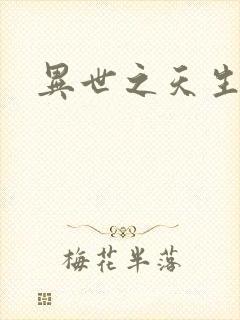 異世之天生
梅花半落